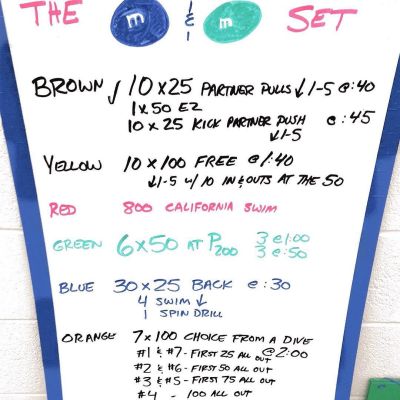 THE m & m SET
BROWN 10x25 PARTNER PULLS ↓1-5 @:40
1x50 EZ
10 x 25 KICK PARTNER PUSH @:45
↓1-5
YELLOW 10x100 FREE @1:40
↓1-5 w/ 10 IN & OUTS AT THE 50
RED 800 CALIFORNIA SWIM
GREEN 6x50 AT P200 3@1:00
3@:50
BLUE 30x25 BACK @:30
4 SWIM ↓
1 SPIN DRILL
ORANGE 7x100 CHOICE FROM A DIVE
@2:00
#1 & #7 - FIRST 25 ALL OUT
#2 & #6 - FIRST 50 ALL OUT
#3 & #5 - FIRST 75 ALL OUT
#4 - 100 ALL OUT